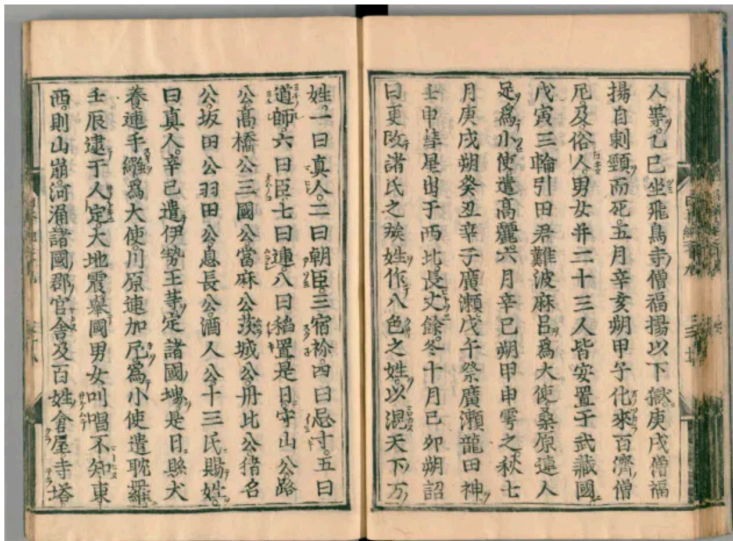 人等乙巳坐飛鳥寺僧福揚以下獄庚戌僧福
揚自刺頸而死五月辛亥朔甲子化來百濟僧
尼及俗人男女并二十三人皆安置于武藏國
戊寅三輪引田君難波麻呂爲大使桑原連人
足爲小使遣高麗六月辛巳朔甲申雩之秋七
月庚戌朔癸丑幸于廣瀬戊午祭廣瀬龍田神
壬申彗星出于西北長丈餘冬十月己卯朔詔
曰更改諸氏之族姓作八色之姓以混天下万
姓一曰真人二曰朝臣三宿祢四曰忌寸五曰
道師六曰臣七曰連八曰稻置是日守山公路
公高橋公三國公當麻公茨城公丹比公猪名
公坂田公羽田公息長公酒人公十三氏賜姓
曰真人辛巳遣伊勢王等定諸國堺是日縣犬
養連手繦爲大使川原連加尼爲小使遣耽羅
壬辰逮于人定大地震擧國男女叫唱不知東
西則山崩河涌諸國郡官舍及百姓倉屋寺塔